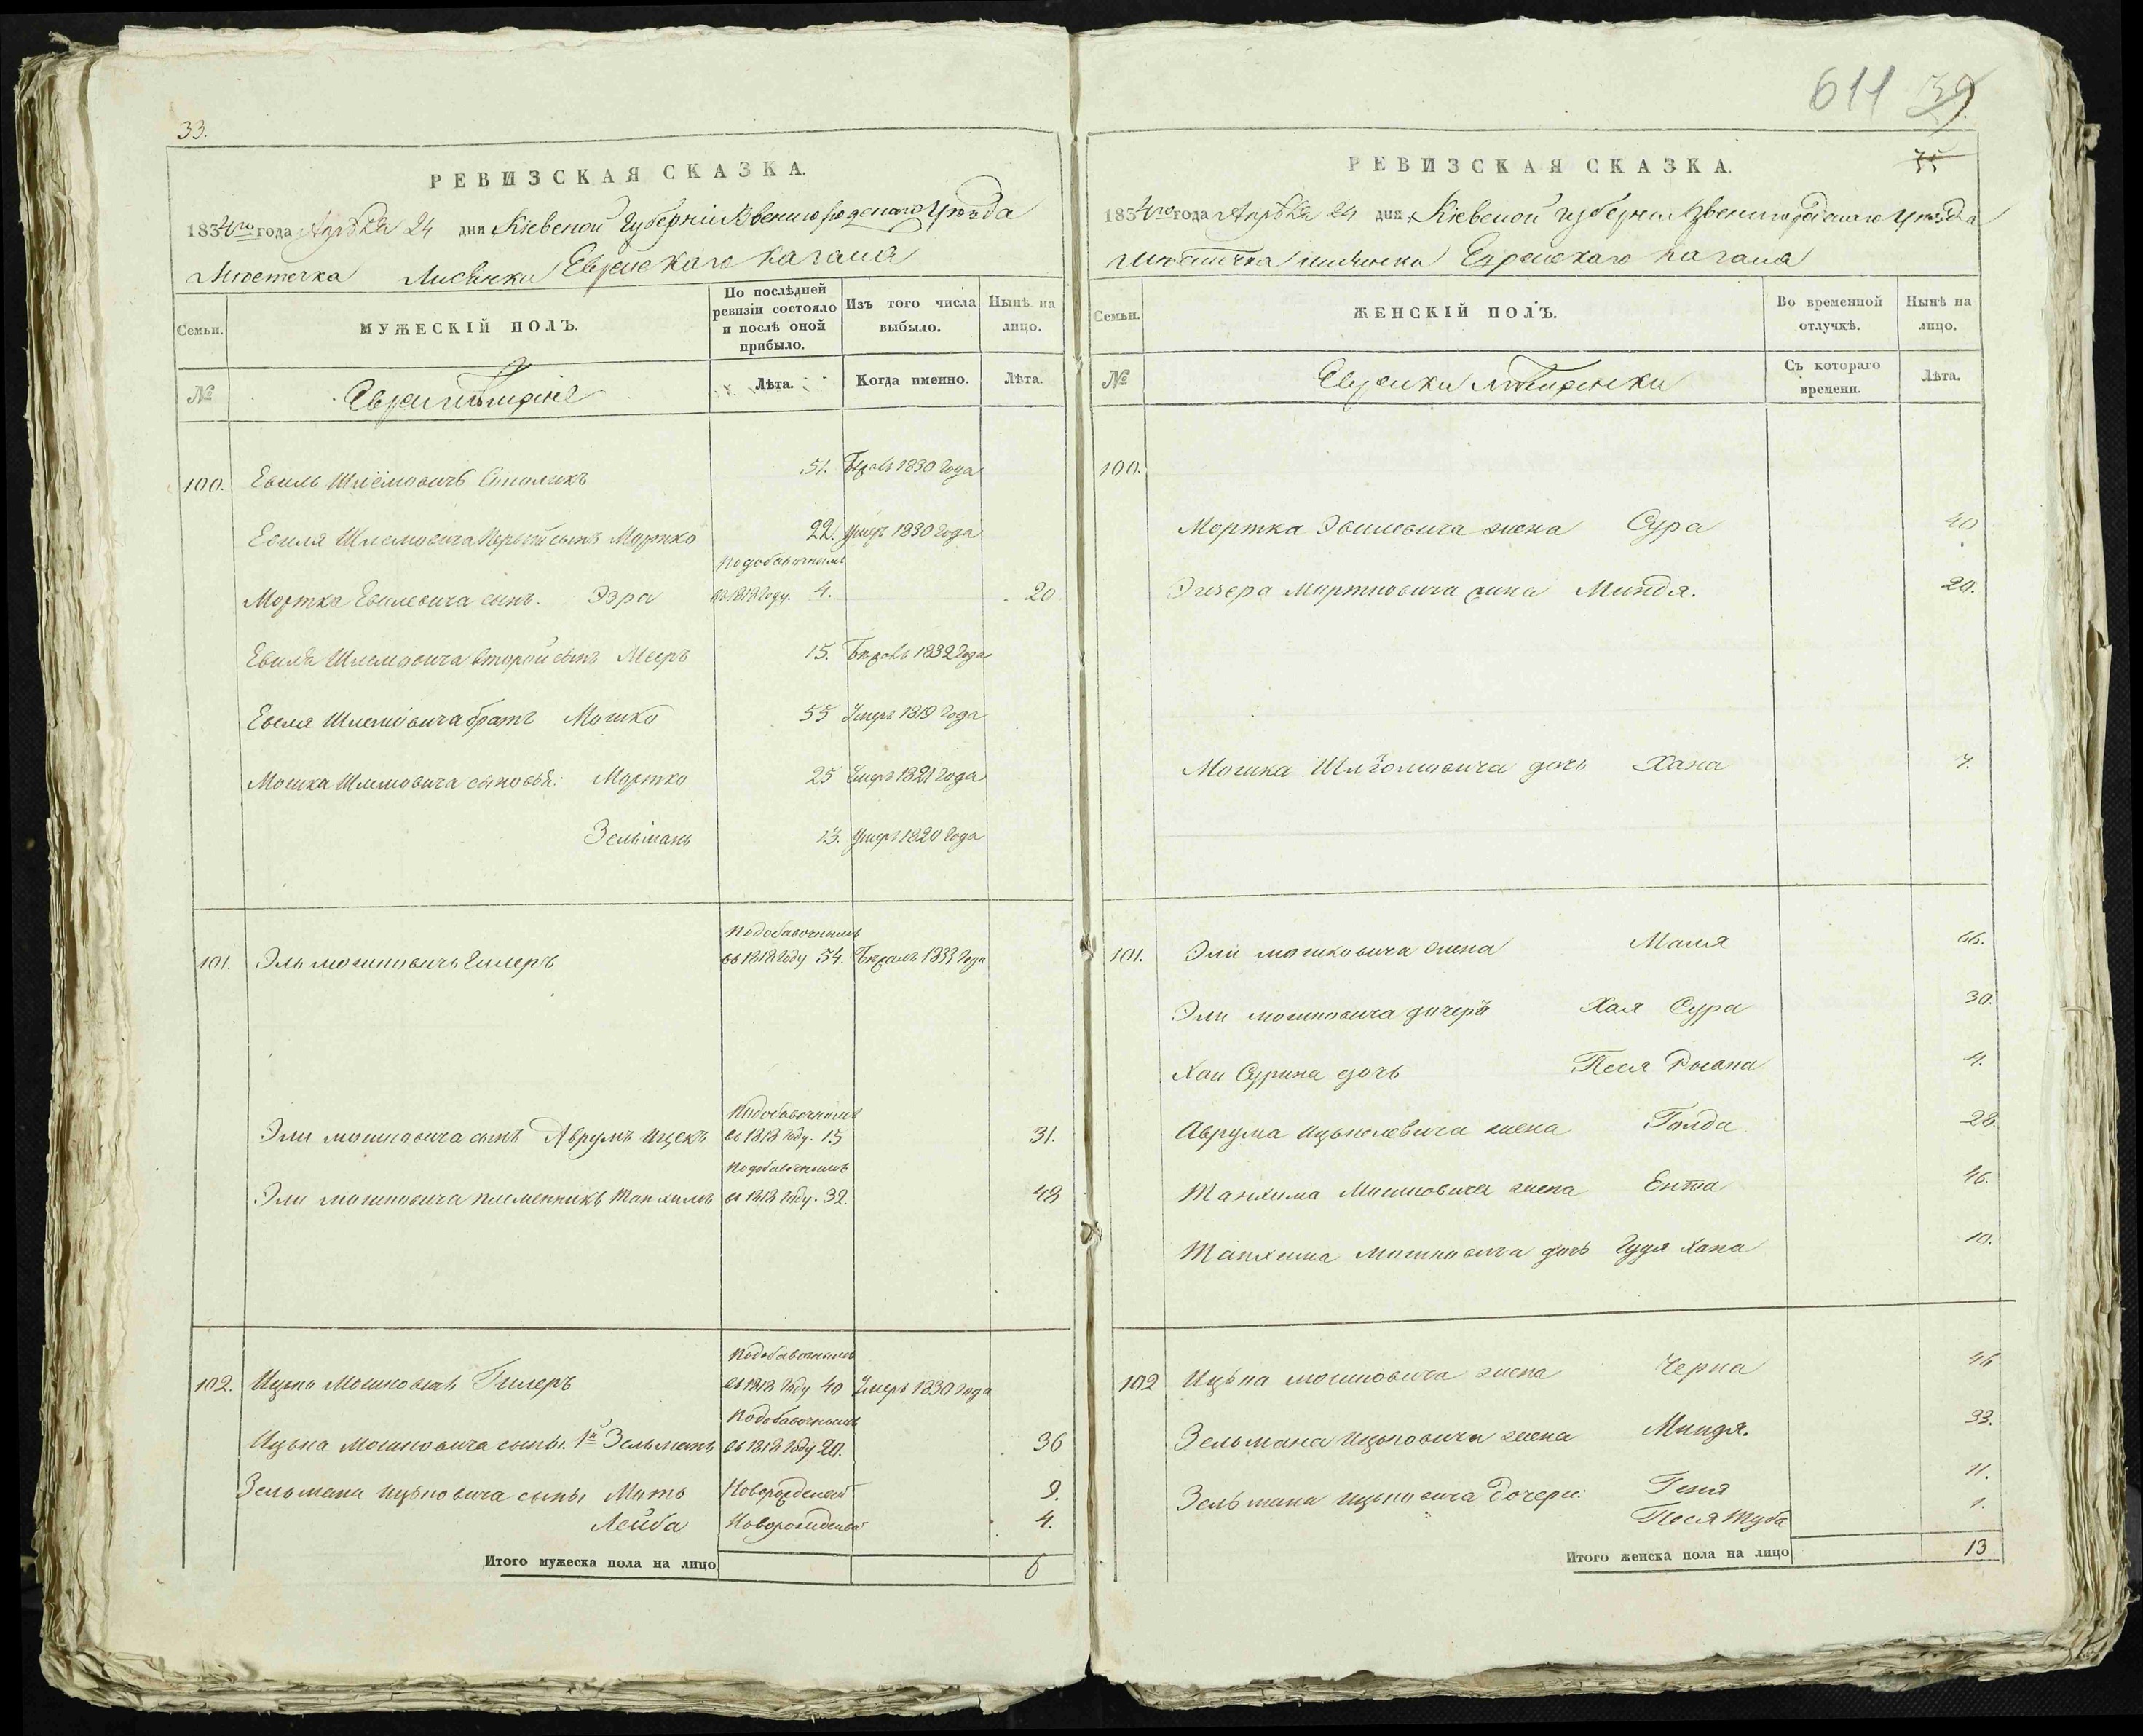 33.
РЕВИЗСКАЯ СКАЗКА.
1834го года Апрѣля 24 дня Кіевской Губерніи Звенигородскаго Уѣзда
Мѣстечка Лисянки Еврейскаго Кагала
Семьи.
МУЖЕСКІЙ ПОЛЪ.
По послѣдней ревизіи состояло и послѣ оной прибыло.
Изъ того числа выбыло.
Нынѣ на лицо.
№
Евреи мѣщане
Лѣта.
Когда именно.
Лѣта.
100. Евиль Шлёмовичъ 51. Бѣжалъ 1830 года
Евиля Шлемовича первый сынъ Мортко 22. умеръ 1830 года
Подобавочнымъ
Мортка Евилевича сынъ. Эзра въ 1818 году. 4. 20
Евиля Шлемовича второй сынъ Мееръ 15. Бѣжалъ 1832 года
Евеля Шлемовича братъ Мошко 55 Умеръ 1819 года
Мошка Шлемовича сыновья: Мортко 25 Умеръ 1821 года
Зельманъ 13. умеръ 1820 года
Подобавочнымъ
101. Эль Мошковичъ Гилеръ въ 1818 году 54. Бѣжалъ 1833 года
Подобавочнымъ
Эли Мошковича сынъ Аврумъ Ицекъ въ 1818 году. 15 31.
Подобавочнымъ
Эли Мошковича племенникъ Танхимъ въ 1818 году. 32. 48
Подобавочнымъ
102. Ицько Мошковичъ Гилеръ въ 1818 году 40 Умеръ 1830 года
Подобавочнымъ
Ицька Мошковича сыны. 1й Зельманъ въ 1818 году 20. 36
Зельмана Ицьковича сыны Новорожденный 9.
Лейба Новорожденный 4.
Итого мужеска пола на лицо 6
611 39.
75
РЕВИЗСКАЯ СКАЗКА.
1834го года Апрѣля 24 дня Кіевской Губерніи Звенигородскаго Уѣзда
Мѣстечка Лисянки Еврейскаго Кагала
Семьи.
ЖЕНСКІЙ ПОЛЪ.
Во временной отлучкѣ.
Нынѣ на лицо.
№
Еврейки мѣщанки
Съ котораго времени.
Лѣта.
100.
Мортка Эвилевича жена Сура 40
Мортковича жена Миндя. 20.
Мошка Шліомовича дочь Хана 7.
101. Эли Мошковича жена Маля 66.
Эли Мошковича дочерь Хая Сура 30.
Хаи Сурина дочь Песя 4.
Аврума Ицькелевича жена Голда 28
Танхима Мошковича жена Ента 46.
Танхима Мошковича дочь Гудя Хана 10.
102 Ицька Мошковича жена Черна 46
Зельмана Ицьковича жена Миндя. 33.
Зельмана Ицьковича дочери: Геня 11.
Песя Туба 1.
Итого женска пола на лицо 13